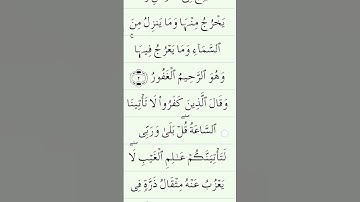 يَخۡرُجُ مِنۡهَا وَمَا يَنزِلُ مِنَ
ٱلسَّمَآءِ وَمَا يَعۡرُجُ فِيهَا
وَهُوَ ٱلرَّحِيمُ ٱلۡغَفُورُ ۝٢
وَقَالَ ٱلَّذِينَ كَفَرُواْ لَا تَأۡتِينَا
ٱلسَّاعَةُۖ قُلۡ بَلَىٰ وَرَبِّي
لَتَأۡتِيَنَّكُمۡ عَٰلِمِ ٱلۡغَيۡبِۖ لَا
يَعۡزُبُ عَنۡهُ مِثۡقَالُ ذَرَّةٖ فِي